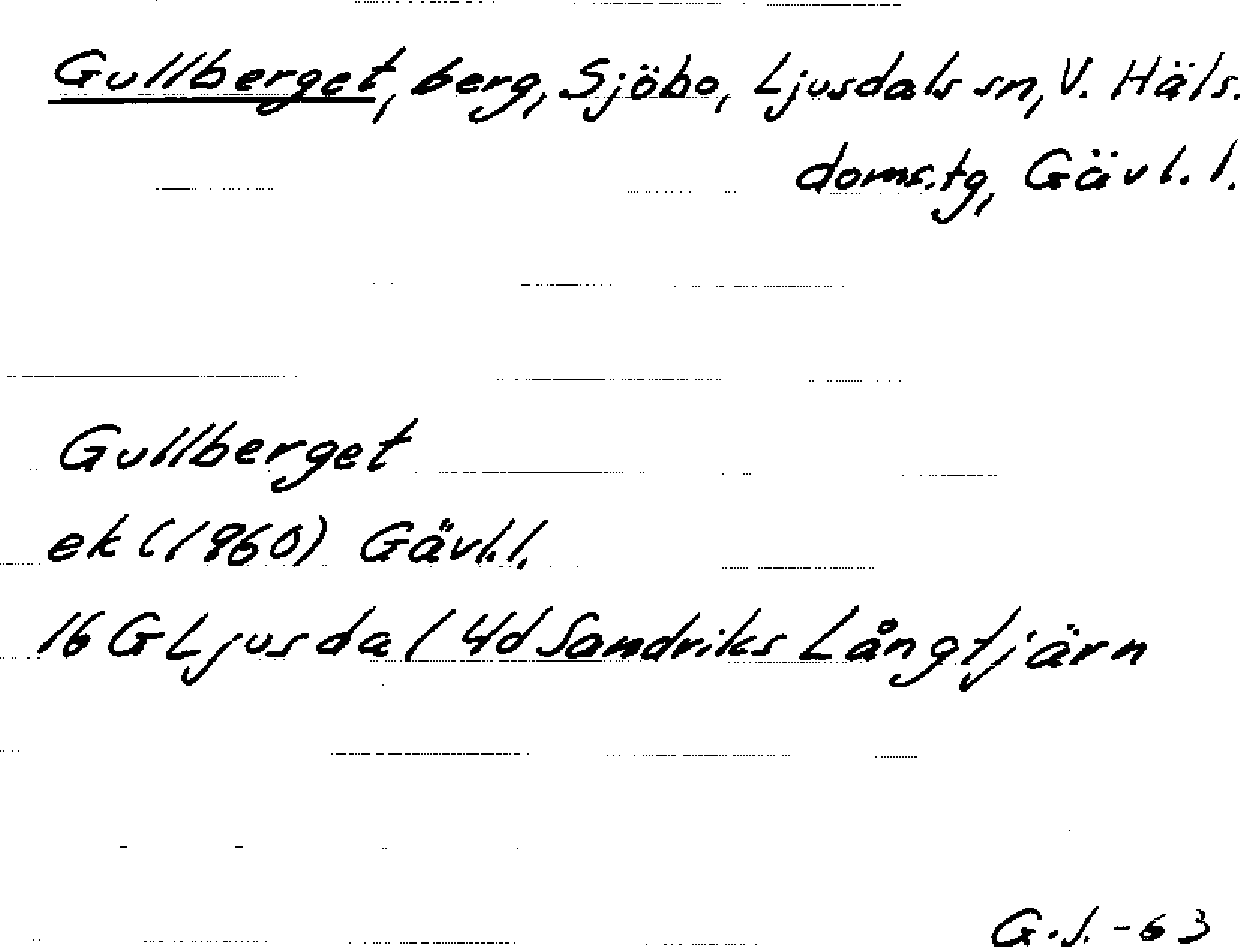 Gullberget, berg, Sjöbo, Ljusdals sn, V. Häls.
doms.tg, Gävl. l.
Gullberget
ek (1960) Gävl.l.
16 G Ljusdal 4d Sandriks Långtjärn
G.J. -63